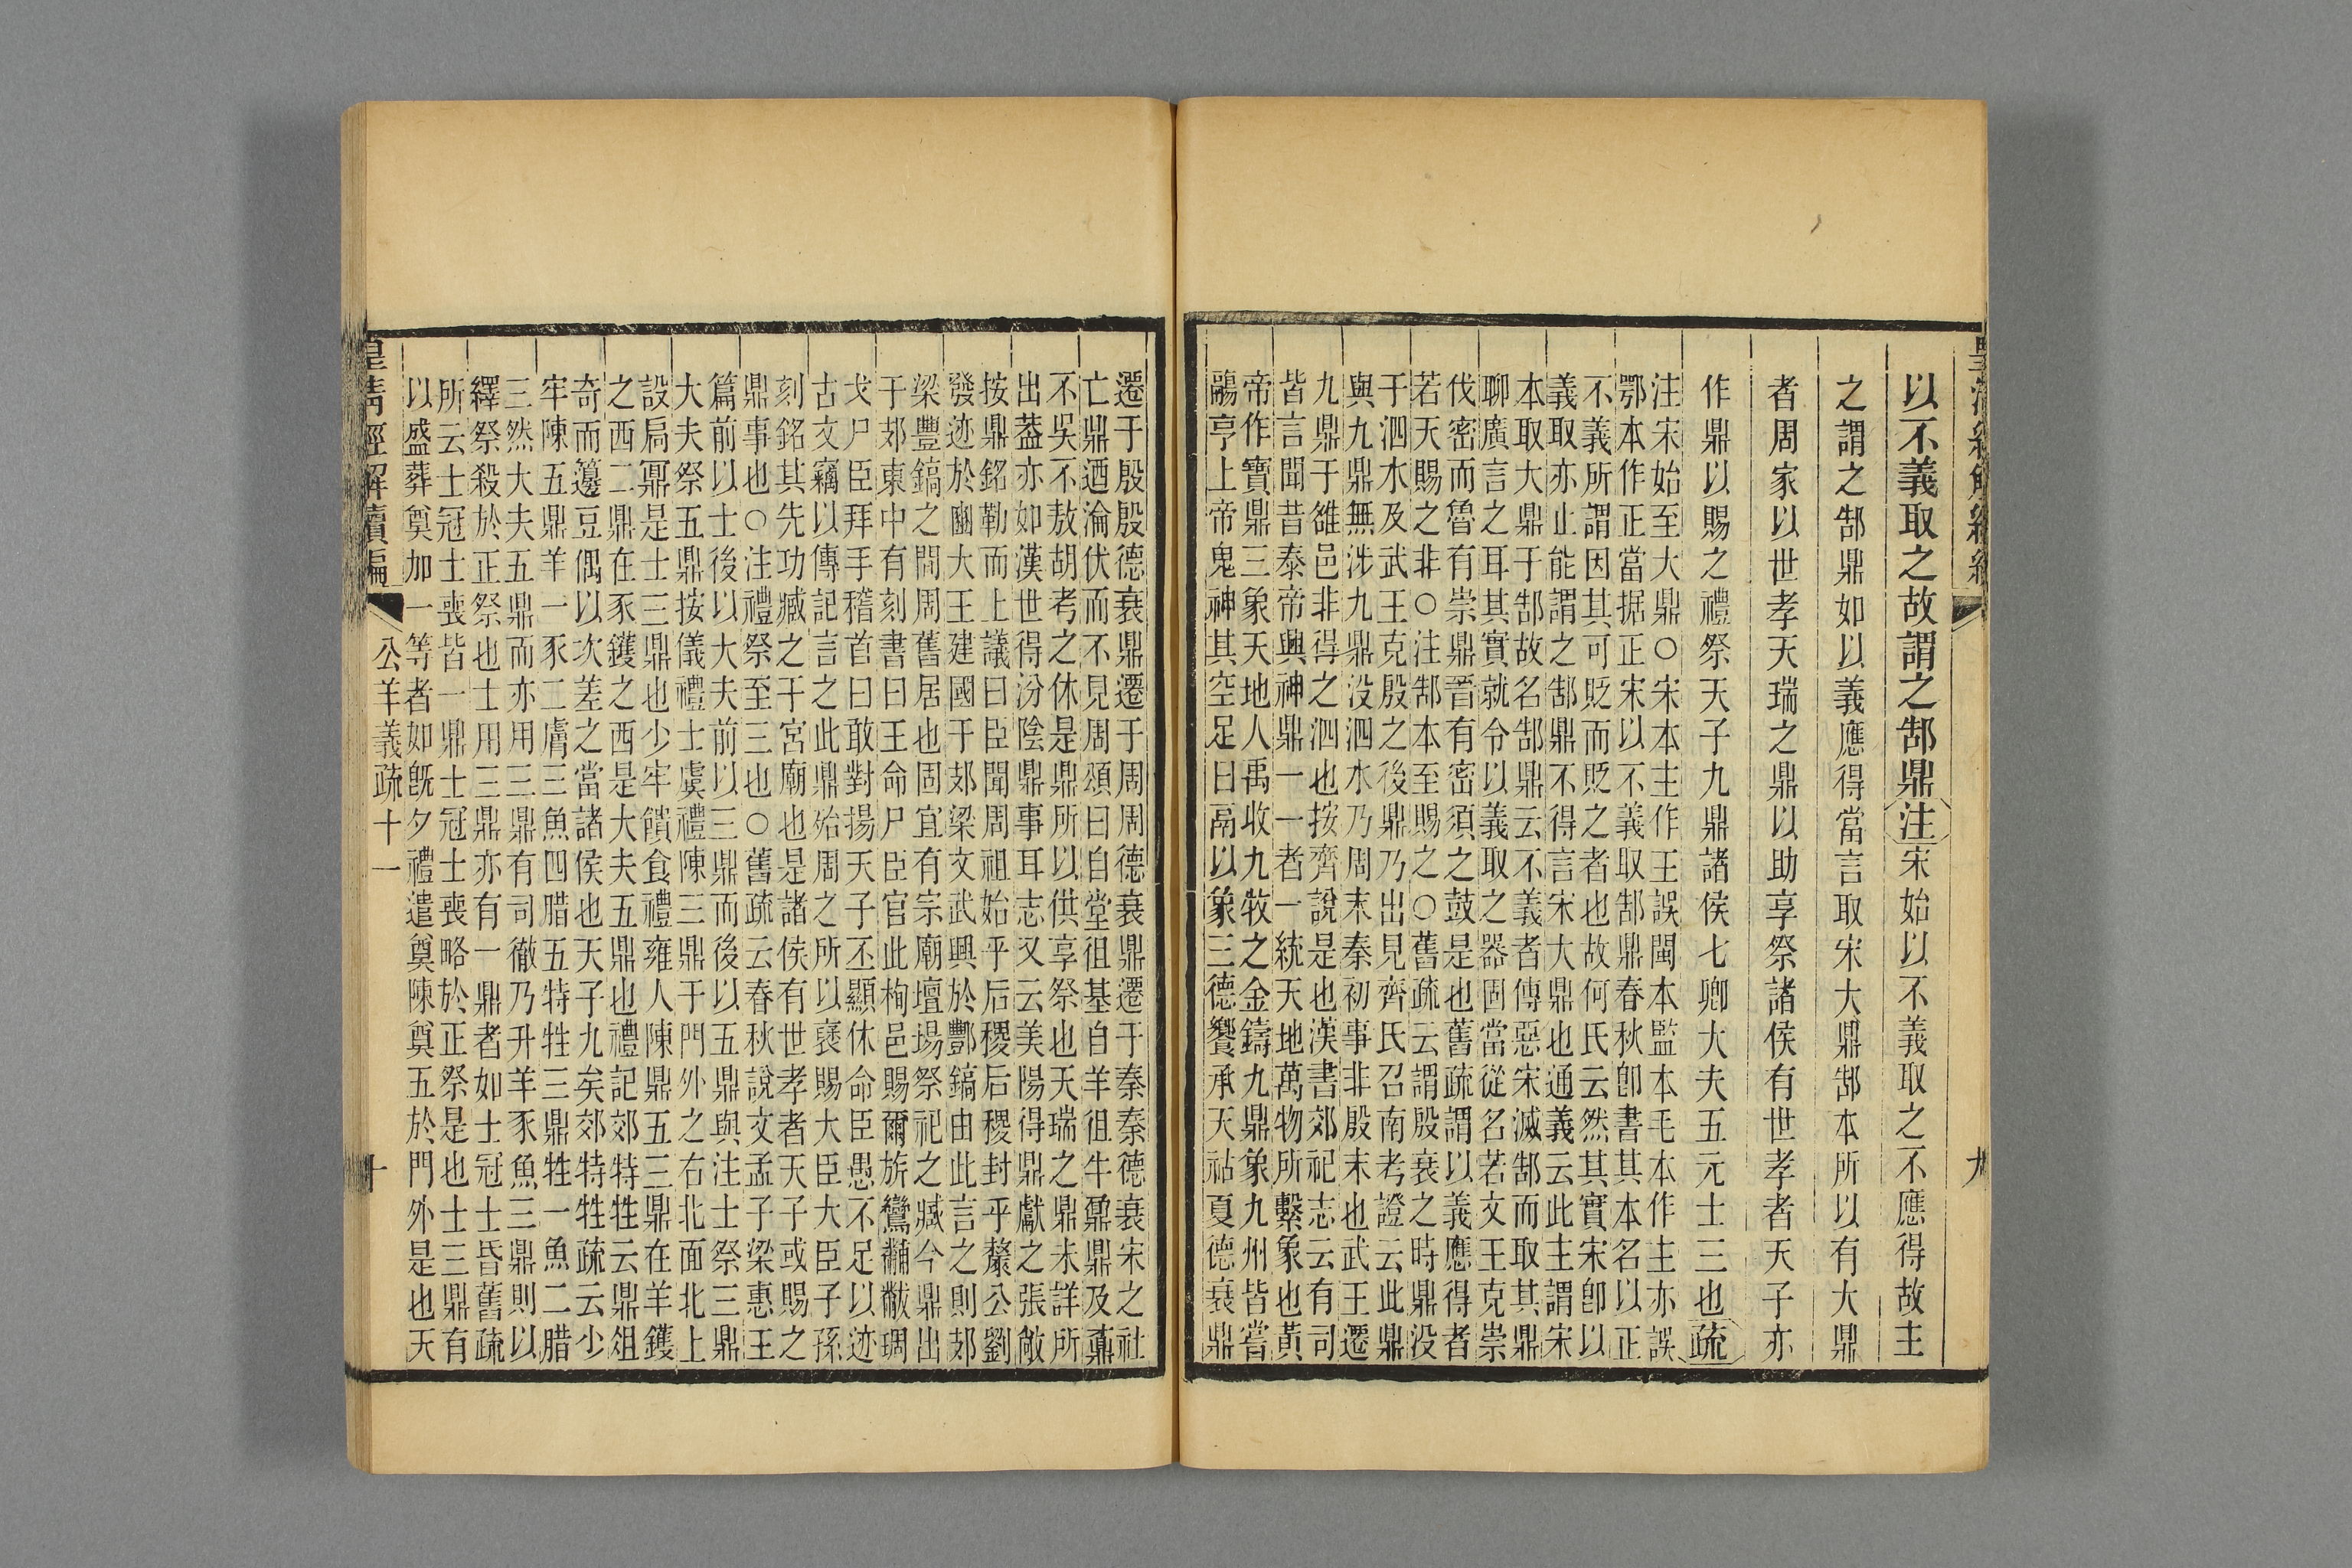 以不義取之故謂之郜鼎注宋始以不義取之不應得故主
之謂之郜鼎如以義應得當言取宋大鼎郜本所以有大鼎
者周家以世孝天瑞之鼎以助享祭諸侯有世孝者天子亦
作鼎以賜之禮祭天子九鼎諸侯七卿大夫五元士三也疏
注宋始至大鼎○宋本主作王誤閩本監本毛本作主亦誤
鄂本作正當据正宋以不義取郜鼎春秋卽書其本名以正
不義所謂因其可貶而貶之者也故何氏云然其實宋卽以
義取亦止能謂之郜鼎不得言宋大鼎也通義云此主謂宋
本取大鼎于郜故名郜鼎云不義者傳惡宋滅郜而取其鼎
聊廣言之耳其實就令以義取之器固當從名若文王克崇
伐密而魯有崇鼎晉有密須之鼓是也舊疏謂以義應得者
若天賜之非○注郜本至賜之○舊疏云謂殷衰之時鼎没
于泗水及武王克殷之後鼎乃出見齊氏召南考證云此鼎
與九鼎無涉九鼎没泗水乃周末秦初事非殷末也武王遷
九鼎于雒邑非得之泗也按齊說是也漢書郊祀志云有司
皆言聞昔泰帝興神鼎一一者一統天地萬物所繫象也黃
帝作寶鼎三象天地人禹收九牧之金鑄九鼎象九州皆嘗
鬺亨上帝鬼神其空足曰鬲以象三德饗承天祜夏德衰鼎
九
遷于殷殷德衰鼎遷于周周德衰鼎遷于秦秦德衰宋之社
亡鼎迺淪伏而不見周頌曰自堂徂基自羊徂牛鼐鼎及鼒
不吳不敖胡考之休是鼎所以供享祭也天瑞之鼎未詳所
出葢亦如漢世得汾陰鼎事耳志又云美陽得鼎獻之張敞
按鼎銘勒而上議曰臣聞周祖始乎后稷后稷封乎斄公劉
發迹於豳大王建國于郊梁文武興於酆鎬由此言之則郊
梁豐鎬之間周舊居也固宜有宗廟壇場祭祀之臧今鼎出
于郊東中有刻書曰王命尸臣官此栒邑賜爾旂鸞黼黻琱
戈尸臣拜手稽首曰敢對揚天子丕顯休命臣愚不足以迹
古文竊以傳記言之此鼎殆周之所以襃賜大臣大臣子孫
刻銘其先功臧之于宮廟也是諸侯有世孝者天子或賜之
鼎事也○注禮祭至三也○舊疏云春秋說文孟子梁惠王
篇前以士後以大夫前以三鼎而後以五鼎與注士祭三鼎
大夫祭五鼎按儀禮士虞禮陳三鼎于門外之右北面北上
設扃鼏是士三鼎也少牢饋食禮雍人陳鼎五三鼎在羊鑊
之西二鼎在豕鑊之西是大夫五鼎也禮記郊特牲云鼎俎
奇而籩豆偶以次差之當諸侯也天子九矣郊特牲疏云少
牢陳五鼎羊一豕二膚三魚四腊五特牲三鼎牲一魚二腊
三然大夫五鼎而亦用三鼎有司徹乃升羊豕魚三鼎則以
繹祭殺於正祭也士用三鼎亦有一鼎者如士冠士昏舊疏
所云士冠士喪皆一鼎士冠士喪略於正祭是也士三鼎有
以盛葬奠加一等者如旣夕禮遣奠陳奠五於門外是也天
皇清經解續編 公羊義疏十一 十